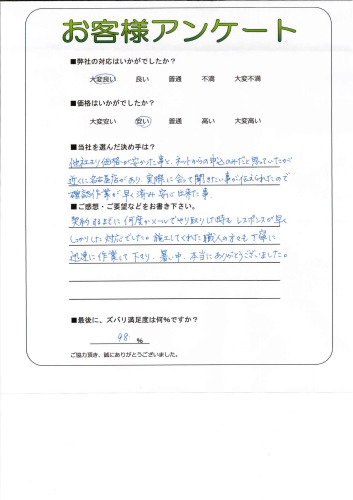 お客様アンケート
■弊社の対応はいかがでしたか?
大変良い 良い 普通 不満 大変不満
■価格はいかがでしたか?
大変安い 安い 普通 高い 大変高い
■当社を選んだ決め手は?
他社より価格が安かった事と、ネットからの申込のみだと思っていたが
近くに名古屋店があり、実際に会って聞きたい事が伝えられたので
確認作業が早く済み安心出来た事。
■ご感想・ご要望などをお書き下さい。
契約するまでに何度かメールでやり取りした時も レスポンスが早く
しっかりした対応でした。施工してくれた職人の方々も丁寧に
迅速に作業して下さり、暑い中、本当にありがとうございました。
■最後に、ズバリ満足度は何%ですか?
98 %
ご協力頂き、誠にありがとうございました。